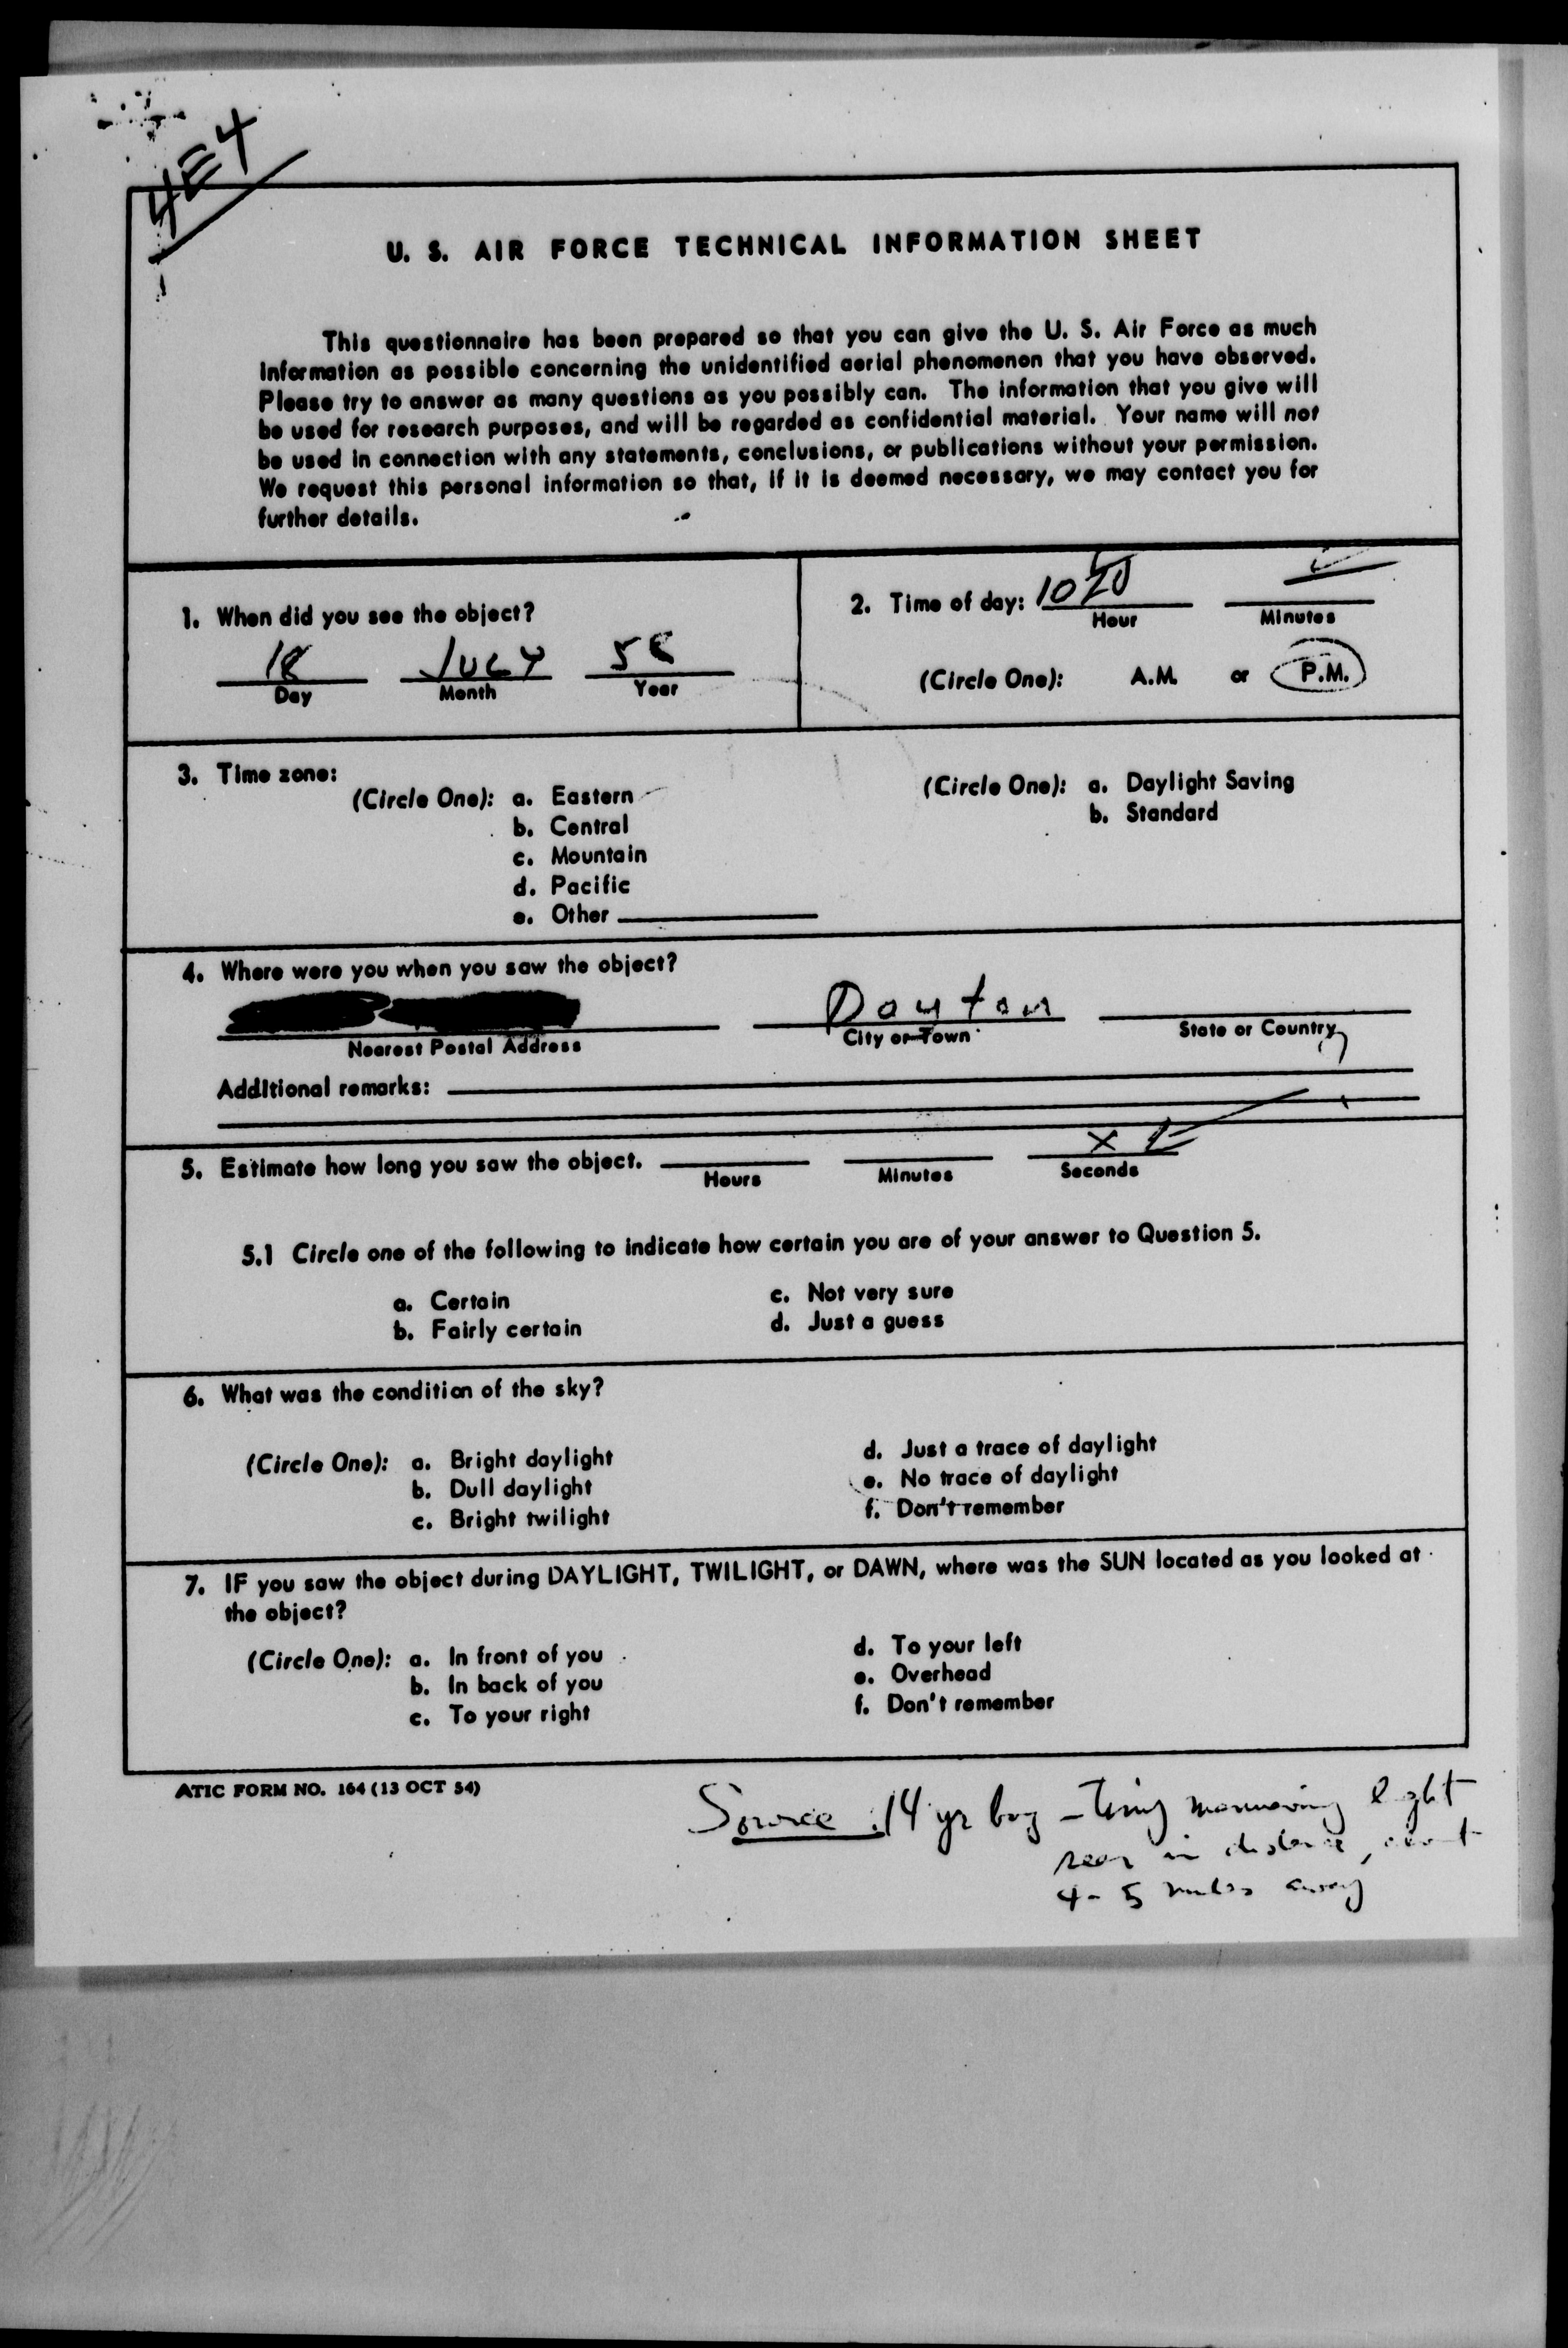 4E4
U. S. AIR FORCE TECHNICAL INFORMATION SHEET
This questionnaire has been prepared so that you can give the U. S. Air Force as much
information as possible concerning the unidentified aerial phenomenon that you have observed.
Please try to answer as many questions as you possibly can. The information that you give will
be used for research purposes, and will be regarded as confidential material. Your name will not
be used in connection with any statements, conclusions, or publications without your permission.
We request this personal information so that, if it is deemed necessary, we may contact you for
further details.
1. When did you see the object?
18 JULY 58
Day Month Year
2. Time of day: 1020
Hour Minutes
(Circle One): A.M. or P.M.
3. Time zone:
(Circle One): a. Eastern
b. Central
c. Mountain
d. Pacific
e. Other
(Circle One): a. Daylight Saving
b. Standard
4. Where were you when you saw the object?
Dayton
Nearest Postal Address City or Town State or Country
Additional remarks:
5. Estimate how long you saw the object.
X
Hours Minutes Seconds
5.1 Circle one of the following to indicate how certain you are of your answer to Question 5.
a. Certain
b. Fairly certain
c. Not very sure
d. Just a guess
6. What was the condition of the sky?
(Circle One): a. Bright daylight
b. Dull daylight
c. Bright twilight
d. Just a trace of daylight
e. No trace of daylight
f. Don't remember
7. IF you saw the object during DAYLIGHT, TWILIGHT, or DAWN, where was the SUN located as you looked at
the object?
(Circle One): a. In front of you
b. In back of you
c. To your right
d. To your left
e. Overhead
f. Don't remember
ATIC FORM NO. 164 (13 OCT 54)
Source: 14 yr boy - light
seen in distance, about
4-5 miles away